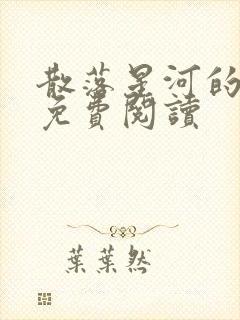 散落星河的
免費閱讀
葉葉然